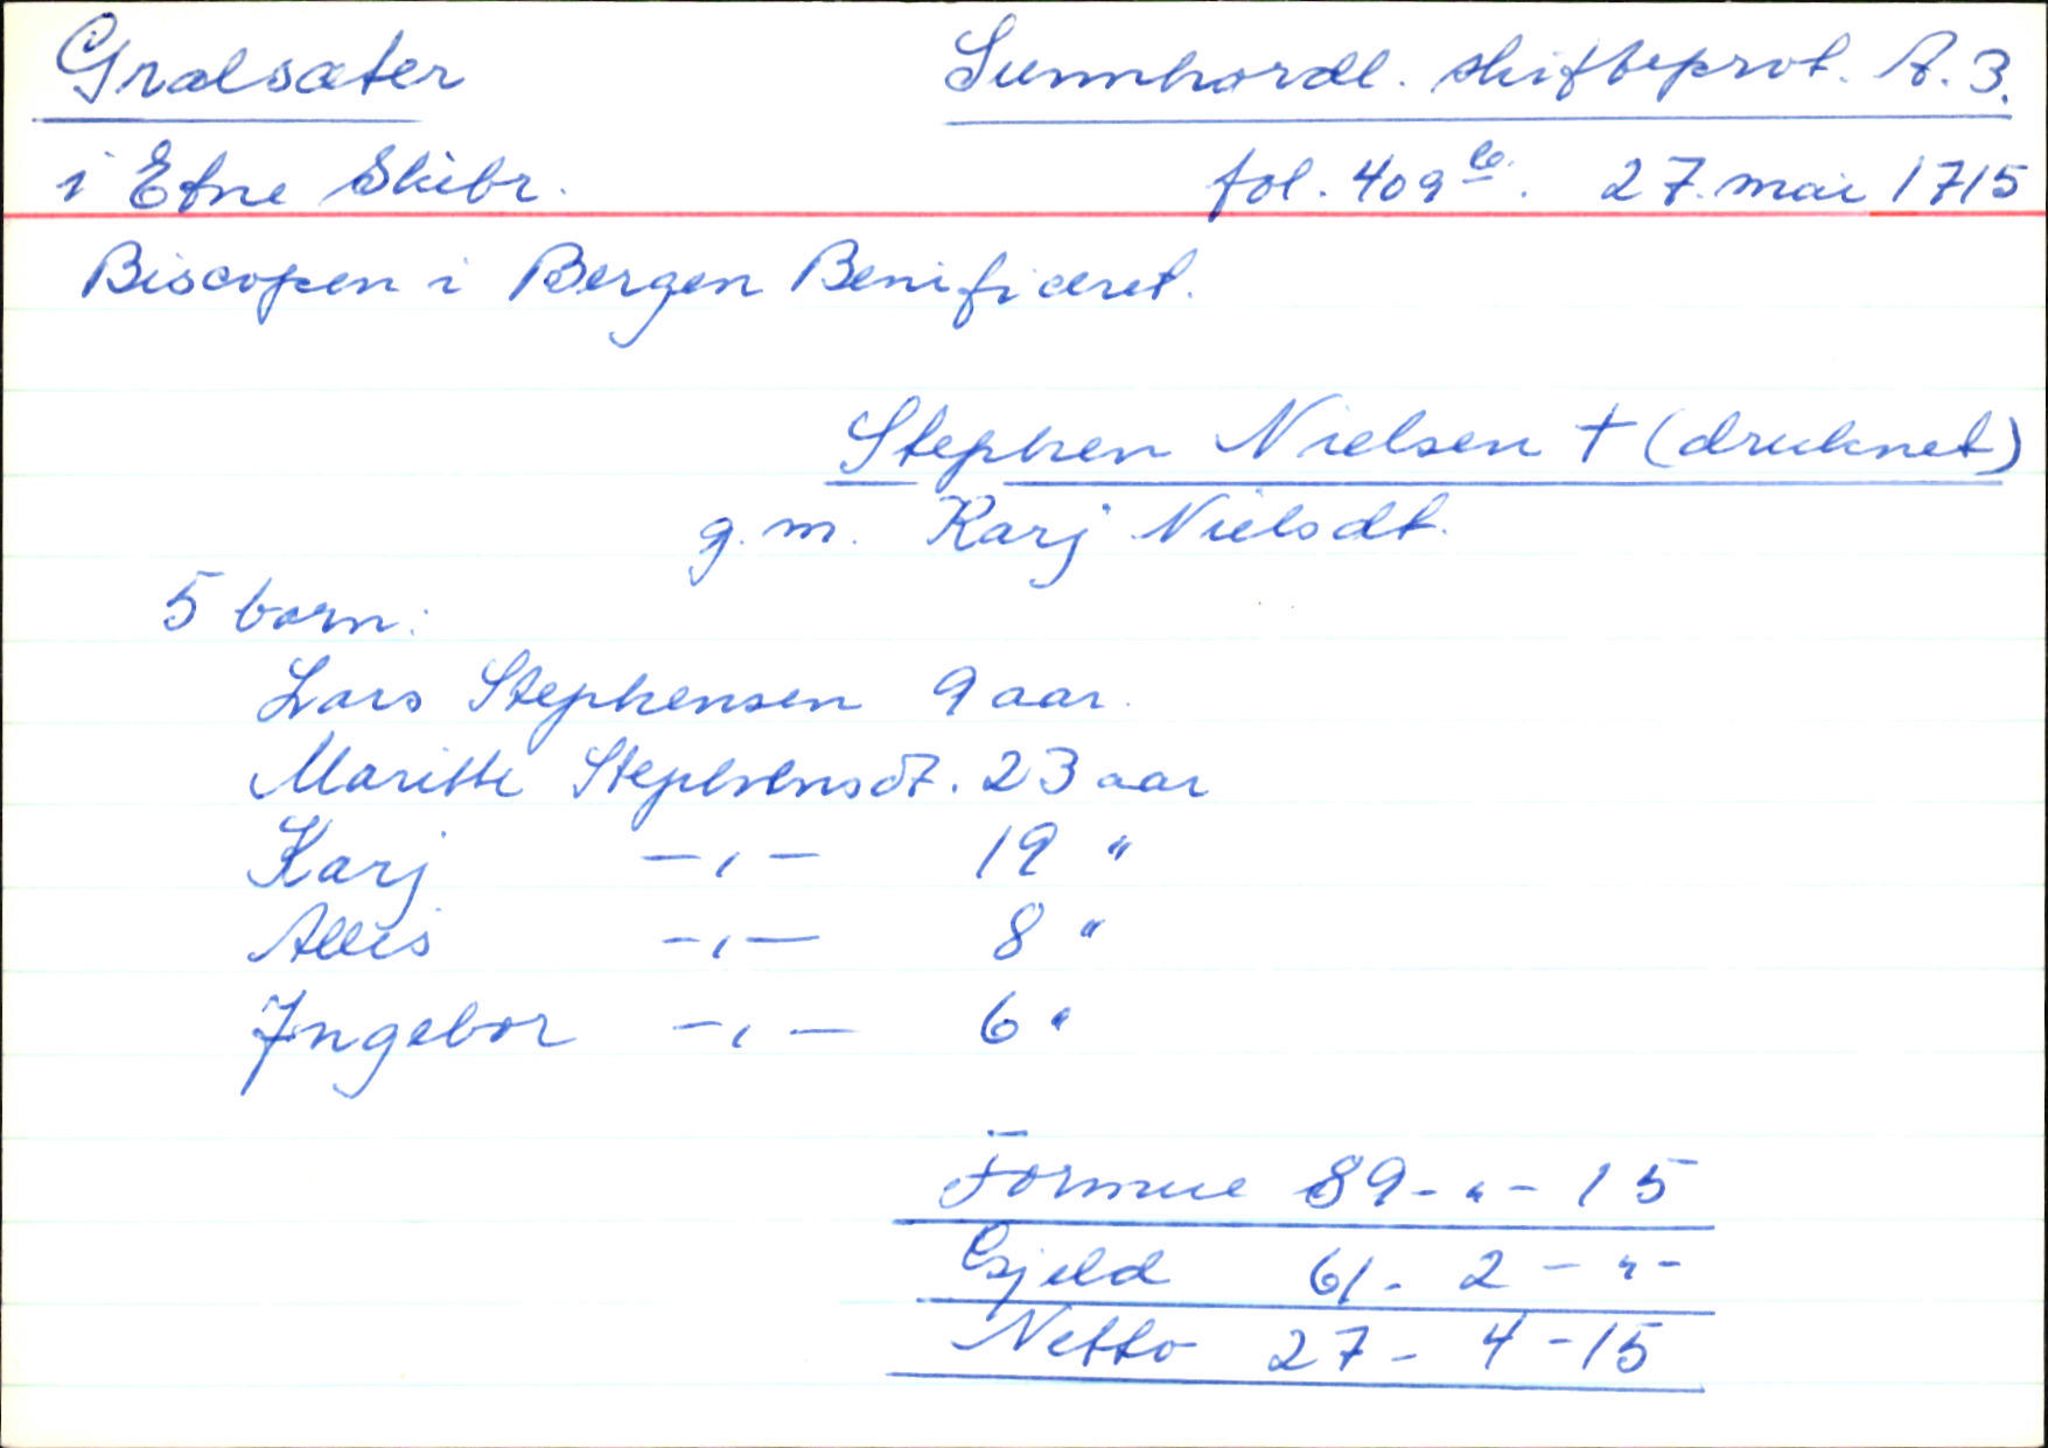 Grælsæter Sunnhordl. skifteprot. A. 3.
i Etne Skibr. fol. 409 b. 27. mai 1715
Biscopen i Bergen Benificeret.
Stephen Nielsen † (druknet)
g. m. Karj Nielsdt.
5 barn:
Lars Stephensen 9 aar.
Maritte Stephensdt. 23 aar
Karj -„- 19 "
Alles -„- 8 "
Ingebor -„- 6 "
Formue 89 - " - 15
Gjeld 61 - 2 - " -
Netto 27 - 4 - 15